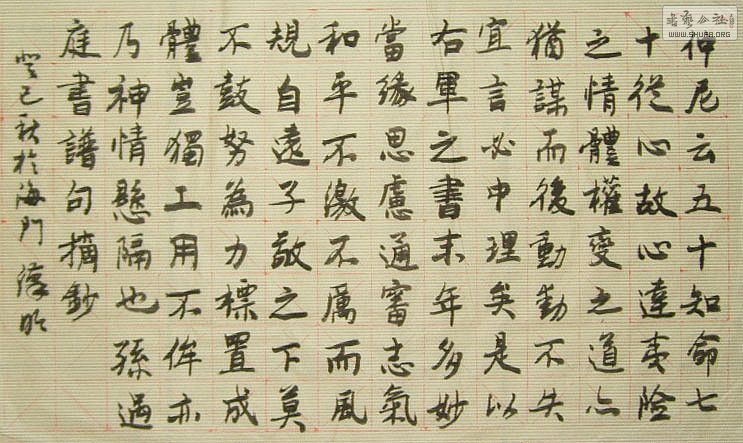 仲尼云五十知命七
十從心故心達夷險
之情體權變之道亦
猶謀而後動動不失
宜言必中理矣是以
右軍之書末年多妙
當緣思慮通審志氣
和平不激不厲而風
規自遠子敬之下莫
不鼓努為力標置成
體豈獨工用不侔亦
乃神情懸隔也孫過
庭書譜句摘鈔
癸巳秋於海門
書藝公社
WWW.SHUFA.ORG